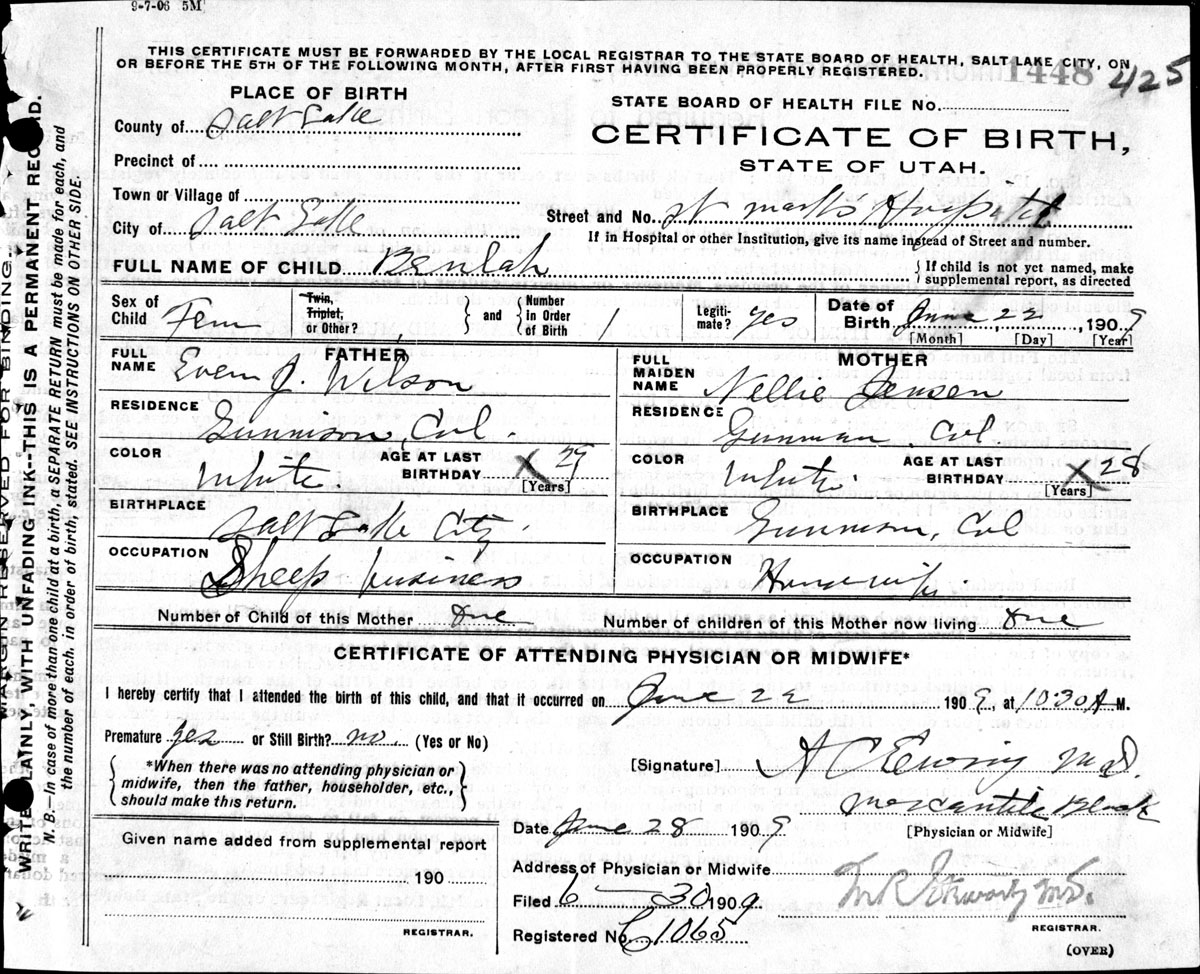 9-7-06 5M
THIS CERTIFICATE MUST BE FORWARDED BY THE LOCAL REGISTRAR TO THE STATE BOARD OF HEALTH, SALT LAKE CITY, ON
OR BEFORE THE 5TH OF THE FOLLOWING MONTH, AFTER FIRST HAVING BEEN PROPERLY REGISTERED.
1448 425
PLACE OF BIRTH
STATE BOARD OF HEALTH FILE No.
County of Salt Lake
CERTIFICATE OF BIRTH,
STATE OF UTAH.
Precinct of
Town or Village of
City of Salt Lake
Street and No. St Marks Hospital
If in Hospital or other Institution, give its name instead of Street and number.
FULL NAME OF CHILD Beulah
{If child is not yet named, make
supplemental report, as directed
Sex of Child Fem
Twin, Triplet, or Other?
} and {
Number in Order of Birth 1
Legiti-mate? yes
Date of Birth June 22, 1909
[Month] [Day] [Year]
FATHER
FULL NAME J. Wilson
RESIDENCE
Gunnison, Col.
COLOR White.
AGE AT LAST BIRTHDAY X 29
[Years]
BIRTHPLACE
Salt Lake City.
OCCUPATION
Sheep business
MOTHER
FULL MAIDEN NAME Nellie Jensen
RESIDENCE
Col
COLOR White.
AGE AT LAST BIRTHDAY X 28
[Years]
BIRTHPLACE
Gunnison, Col
OCCUPATION
Housewife.
Number of Child of this Mother One
Number of children of this Mother now living One
CERTIFICATE OF ATTENDING PHYSICIAN OR MIDWIFE*
I hereby certify that I attended the birth of this child, and that it occurred on June 22 1909, at 10:30 A M.
Premature yes or Still Birth? no. (Yes or No)
{*When there was no attending physician or
midwife, then the father, householder, etc.,
should make this return.}
[Signature] A C Ewing M.D.
Mercantile Block
[Physician or Midwife]
Date June 28 1909
Given name added from supplemental report
190
REGISTRAR.
Address of Physician or Midwife
Filed 6-30 1909
Registered No. 1065
REGISTRAR.
(OVER)
MARGIN RESERVED FOR BINDING.
WRITE PLAINLY, WITH UNFADING INK--THIS IS A PERMANENT RECORD.
N. B.—In case of more than one child at a birth, a SEPARATE RETURN must be made for each, and
the number of each, in order of birth, stated. SEE INSTRUCTIONS ON OTHER SIDE.